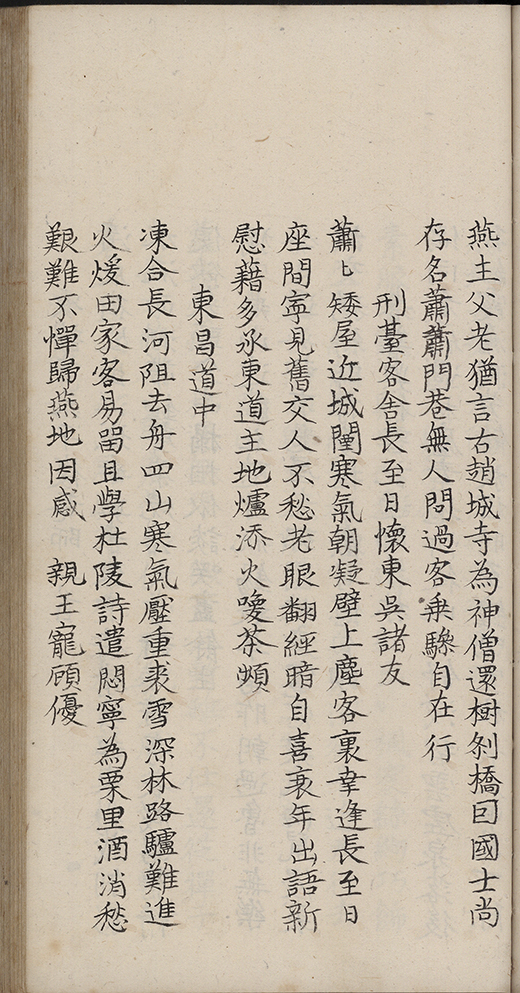 燕主父老猶言古趙城寺為神僧還樹刹橋曰國士尚
存名蕭蕭門巷無人問過客乗騾自在行
刑臺客舍長至日懷東吳諸友
蕭〻矮屋近城闉寒氣朝凝壁上塵客裏幸逢長至日
座間寧見舊交人不愁老眼翻經暗自喜衰年出語新
慰藉多承東道主地爐添火喚茶頻
東昌道中
凍合長河阻去舟四山寒氣壓重裘雪深林路驢難進
火煖田家客易留且學杜陵詩遣悶寧為栗里酒消愁
艱難不憚歸燕地因感 親王寵顧優